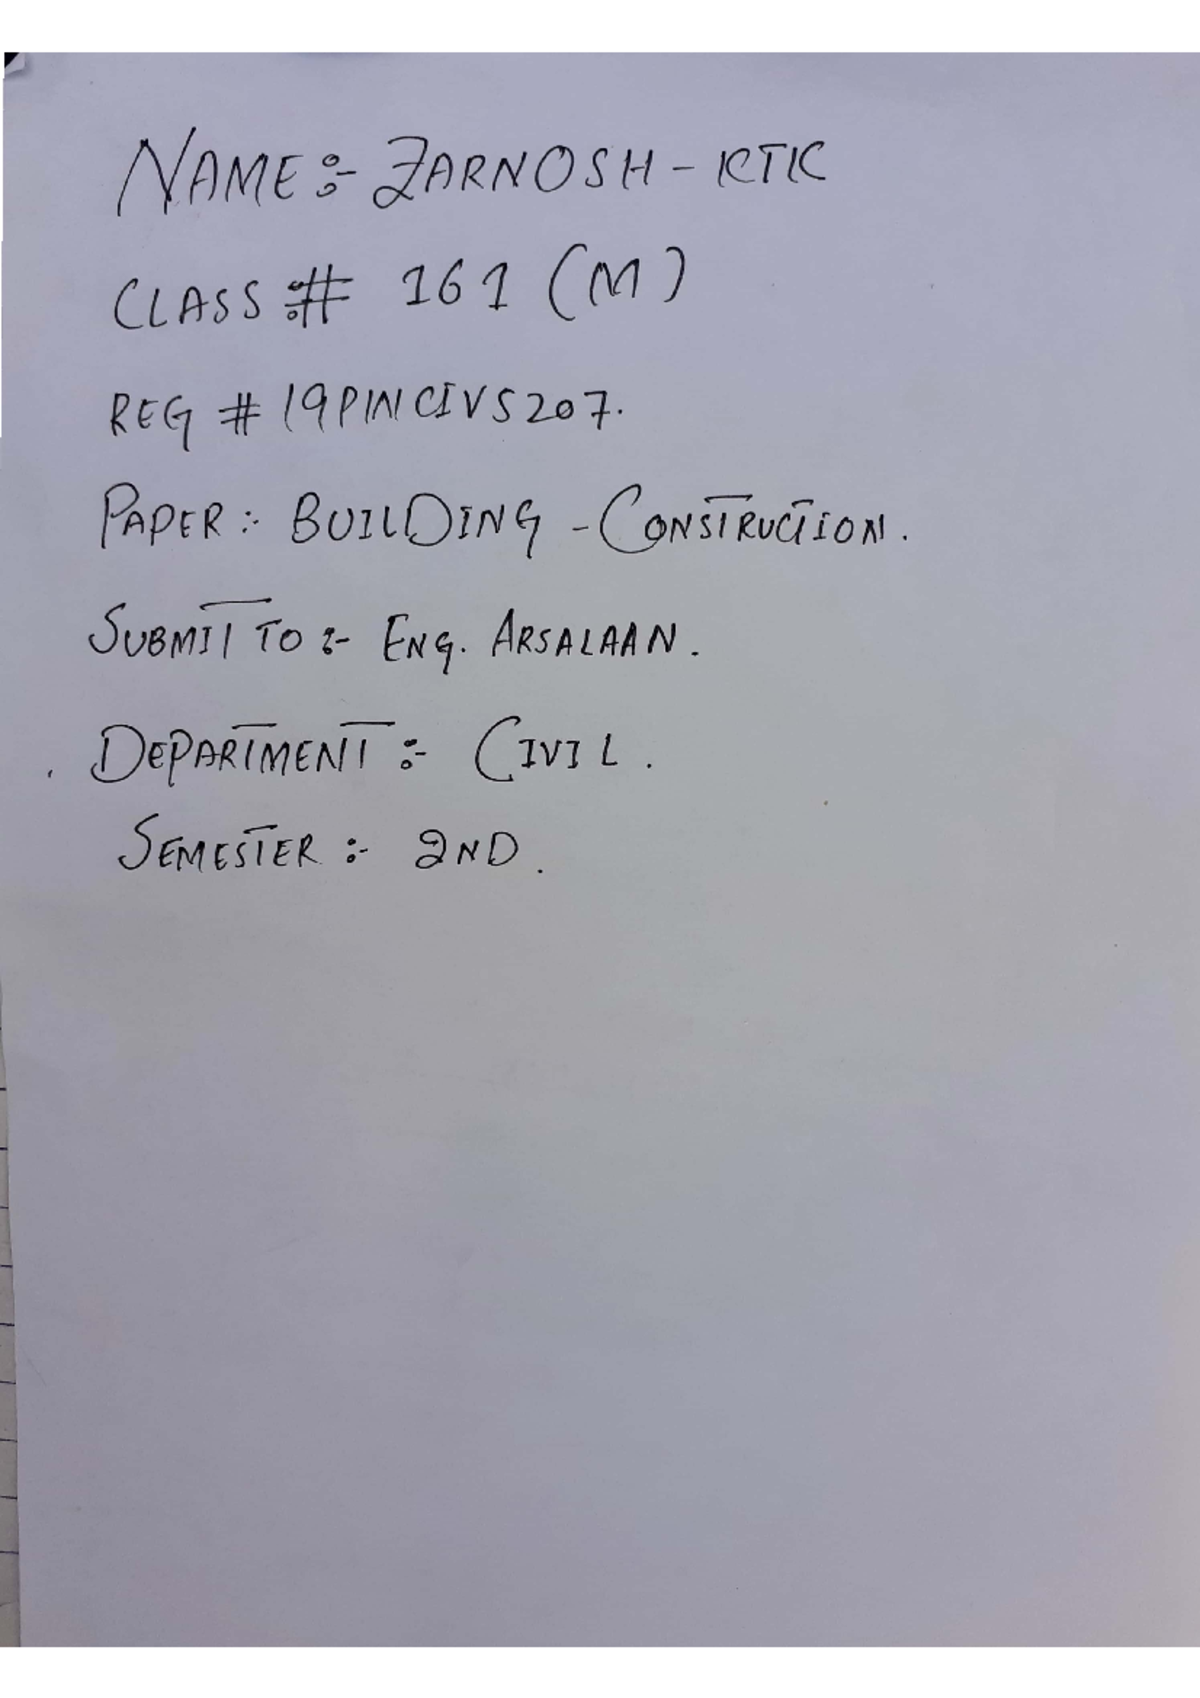 NAME:- ZARNOSH - KTK
CLASS:# 161 (M)
REG # 19PWCIV5207.
PAPER:- BUILDING - CONSTRUCTION.
SUBMIT TO:- ENG. ARSALAAN.
DEPARTMENT:- CIVIL.
SEMESTER:- 2ND.